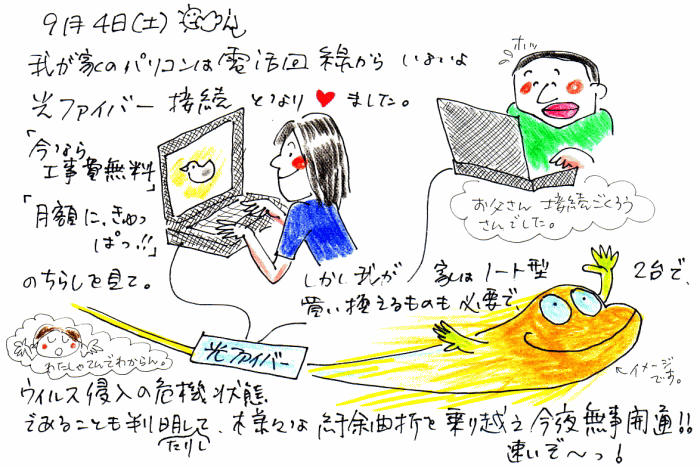 9月4日(土)
我が家のパソコンは電話回線から いよいよ
光ファイバー接続 となり♥ました。
ホッ
「今なら
工事費無料」
「月額に、きゅっ
ぱっ!!」
のちらしを見て。
お父さん 接続ごくろう
さんでした。
しかし我が家はノート型 2台で、
買い換えるものも必要で、
わたしゃてんでわからん。
光ファイバー
←イメージ
です。
ウィルス侵入の危機状態
であることも判明して、様々な 紆余曲折を乗り越え 今夜無事開通!!
たりし
速いぞ〜っ!